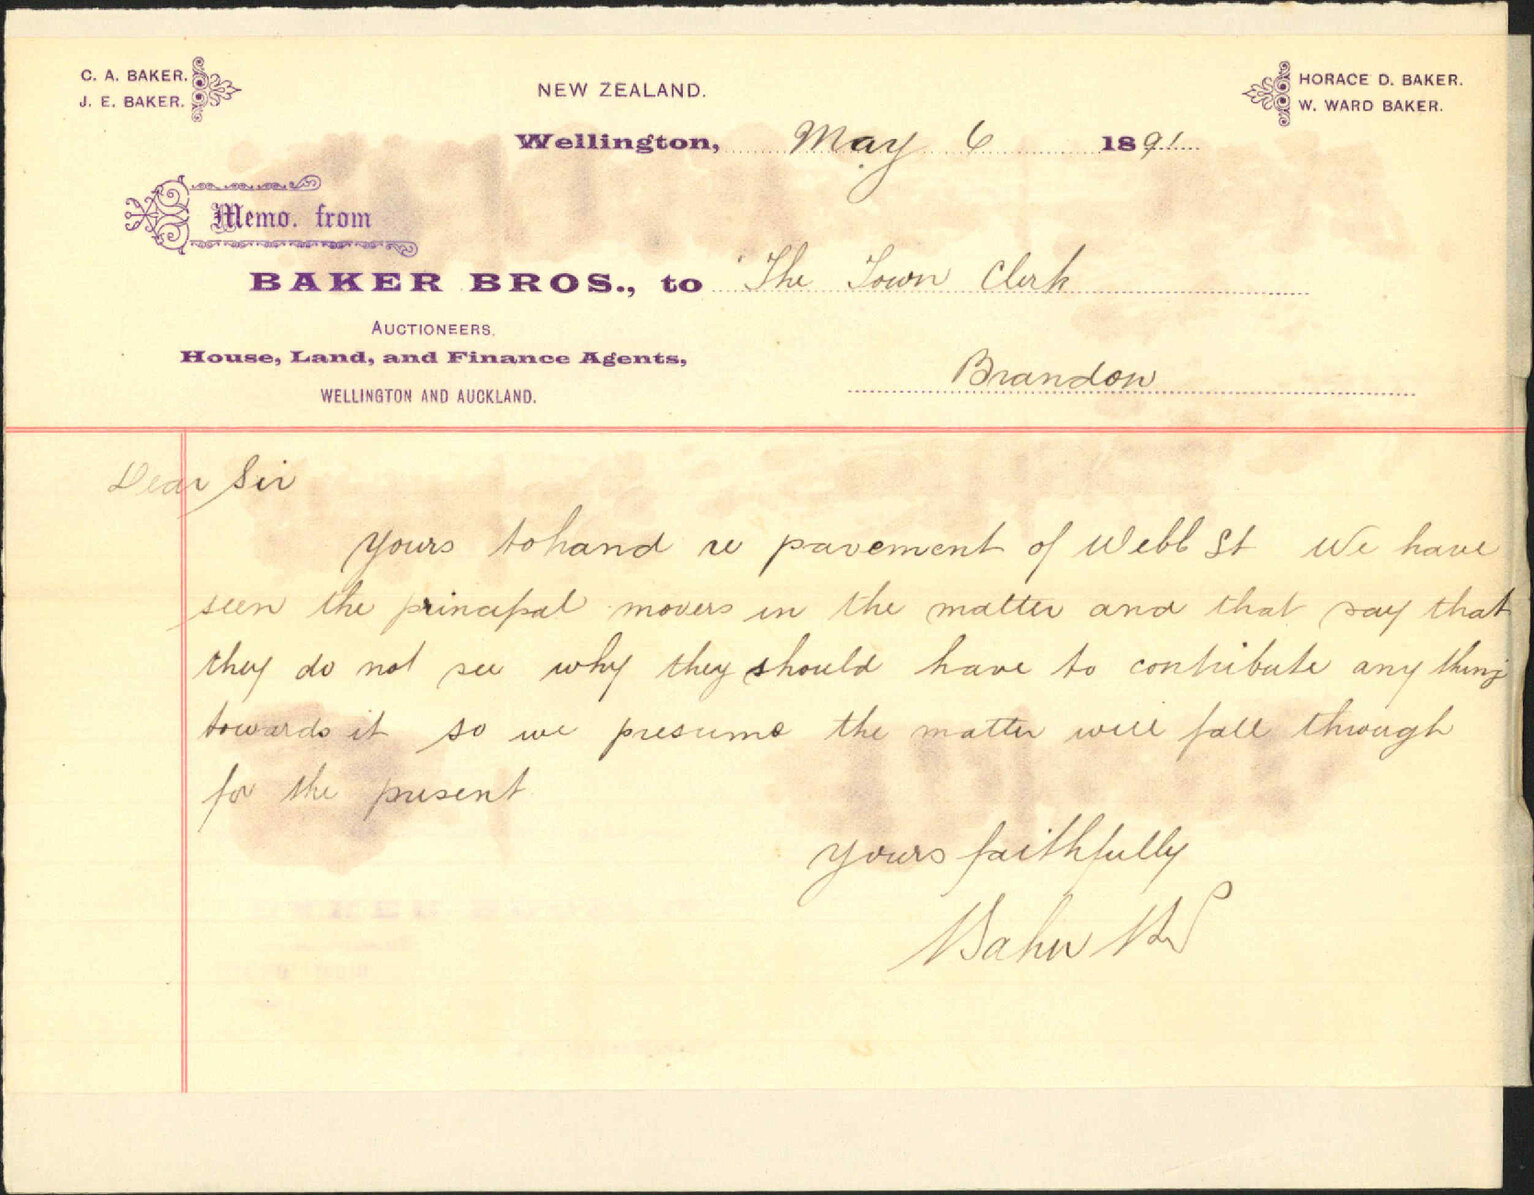 C. A. BAKER.
J. E. BAKER.
NEW ZEALAND.
HORACE D. BAKER.
W. WARD BAKER.
Wellington, May 6 1891
Memo. from
BAKER BROS., to The Town Clerk
AUCTIONEERS,
House, Land, and Finance Agents,
WELLINGTON AND AUCKLAND.
Brandon
Dear Sir
Yours to hand re pavement of Webb St We have
seen the principal movers in the matter and that say that
they do not see why they should have to contribute any thing
towards it so we presume the matter will fall through
for the present
Yours faithfully
Baker Bros